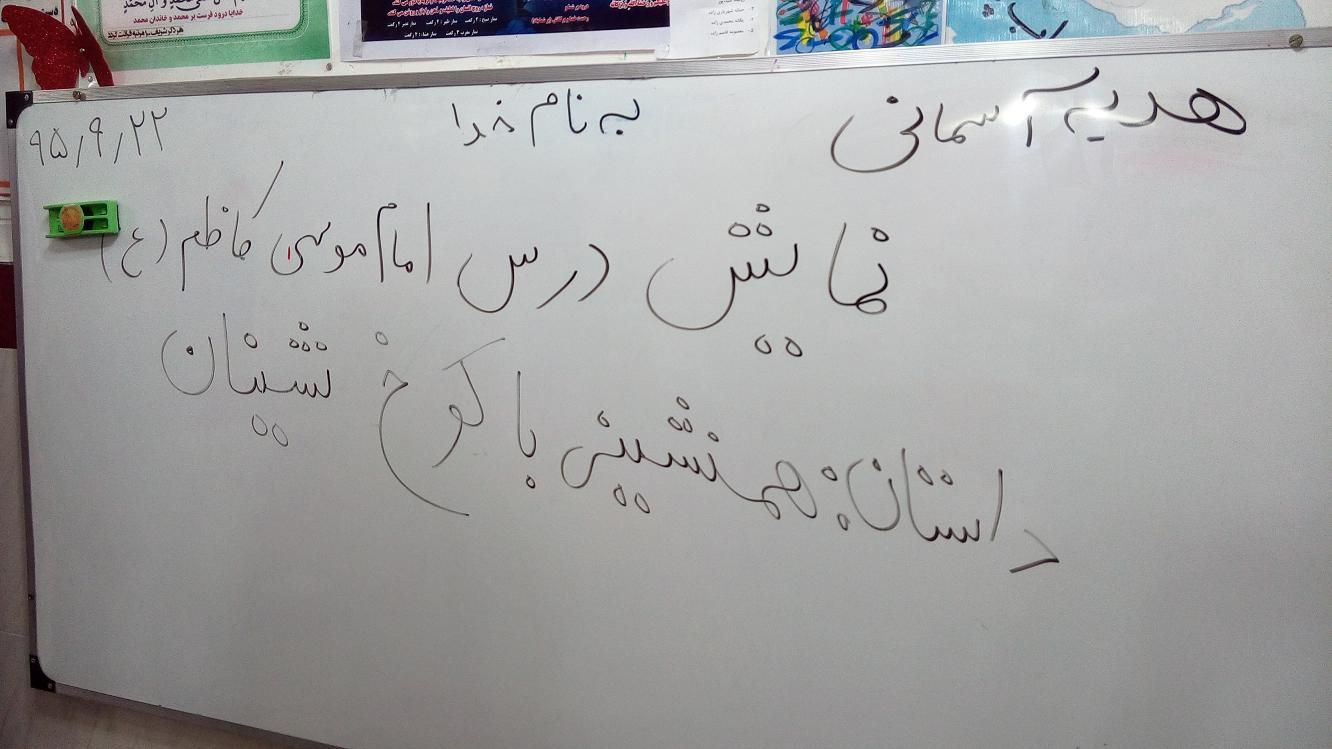 خدایا درود فرست بر محمد و خاندان محمد
هدیه آسمانی
به نام خدا
۹۵٫۹٫۲۲
نمایش درس امام موسی کاظم (ع)
داستان: همنشینی با کوخ نشینان